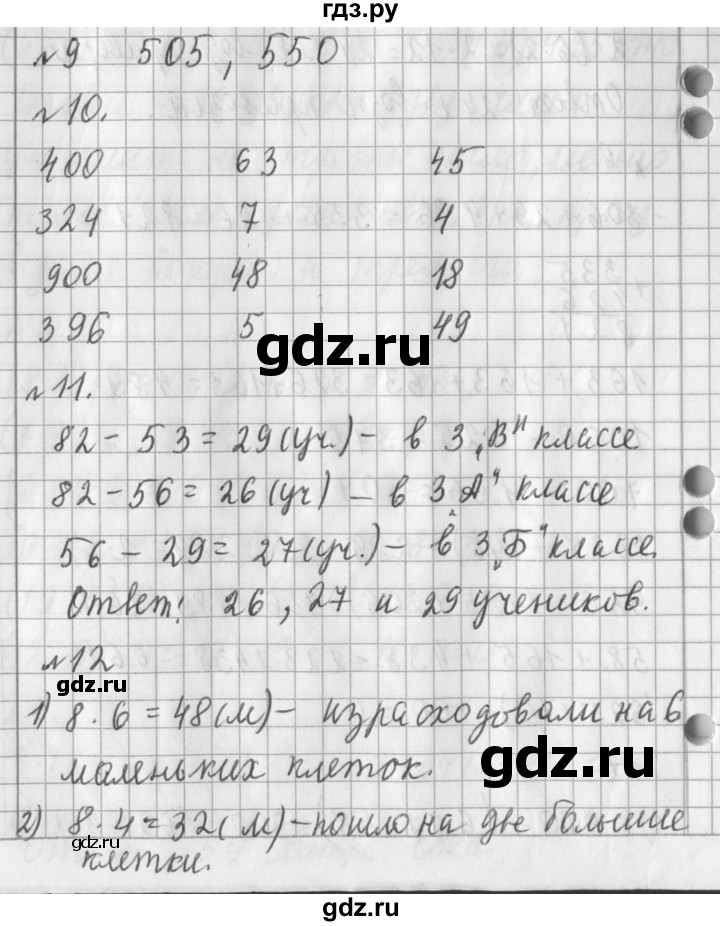 гдз.ру
№9 505, 550
№10.
400 63 45
324 7 4
900 48 18
396 5 49
gdz.ru
№11.
82 - 53 = 29 (уч.) - в 3 „В" классе
82 - 56 = 26 (уч) - в 3 „А" классе
56 - 29 = 27 (уч.) - в 3 „Б" классе.
Ответ: 26, 27 и 29 учеников.
№12
gdz.ru
1) 8 · 6 = 48 (м) - израсходовали на 6
маленьких клеток.
gdz.ru
2) 8 · 4 = 32 (м) - пошло на две большие
клетки.
gdz.ru
gdz.ru